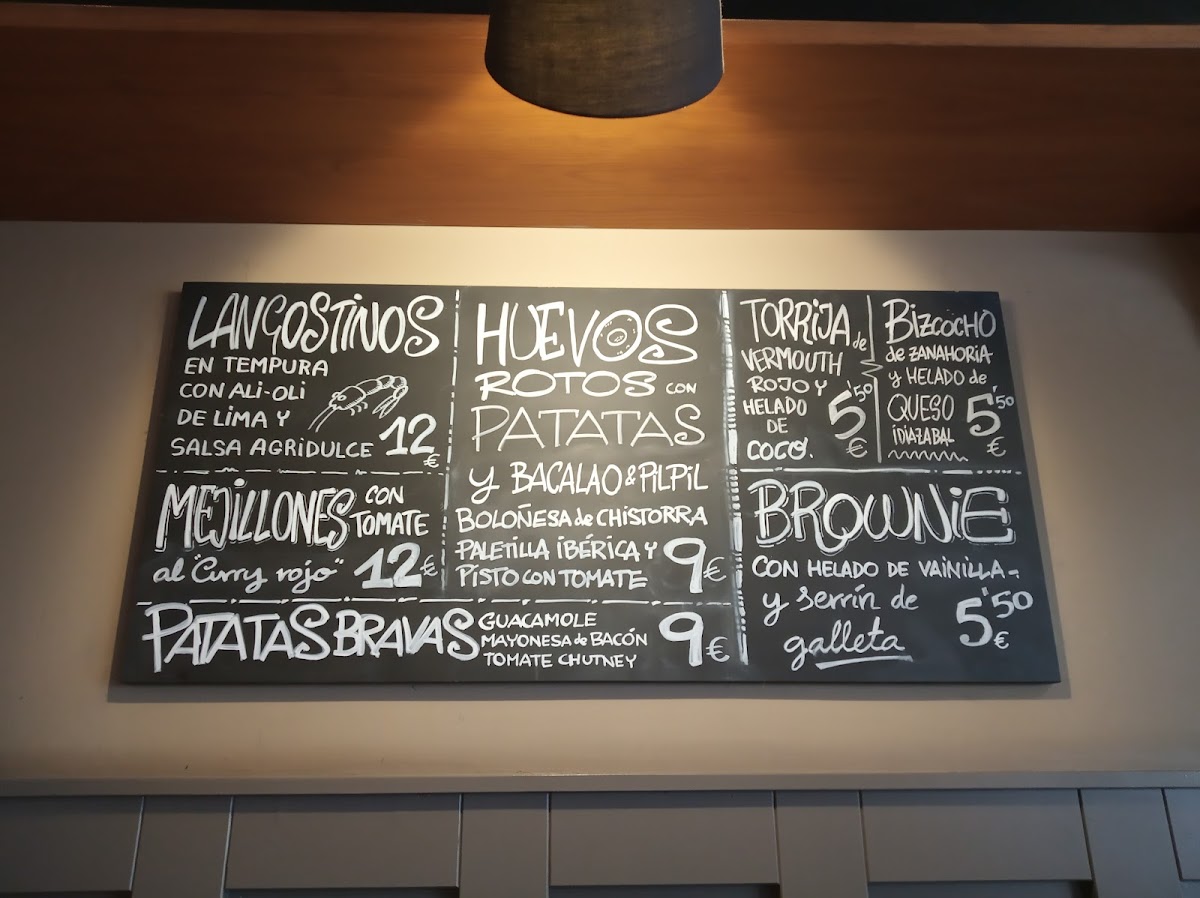 LANGOSTINOS
EN TEMPURA
CON ALI-OLI
DE LIMA Y
SALSA AGRIDULCE 12 €
MEJILLONES CON
TOMATE
al "Curry rojo" 12 €
PATATAS BRAVAS
GUACAMOLE
MAYONESA de BACÓN
TOMATE CHUTNEY
9 €
HUEVOS
ROTOS CON
PATATAS
y BACALAO & PILPIL
BOLOÑESA de CHISTORRA
PALETILLA IBÉRICA Y
PISTO CON TOMATE
9 €
TORRIJA de
VERMOUTH
ROJO Y
HELADO
DE
COCO.
5'50 €
BIZCOCHO
de ZANAHORIA
y HELADO de
QUESO
IDIAZABAL
5'50 €
BROWNIE
CON HELADO DE VAINILLA-
y serrín de
galleta
5'50 €